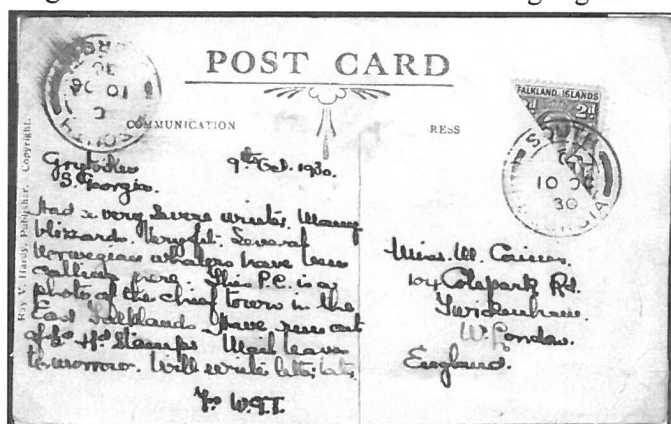 POST CARD
COMMUNICATION
RESS
FALKLAND ISLANDS
2d
SOUTH
10 OC
30
Ray V. Hardy, Publisher, Copyright.
Grytviken
S. Georgia.
9th Oct. 1930.
Had a very severe winter. Many
blizzards. Very fit. Several
Norwegian whalers have been
calling here. This P.C. is a
photo of the chief town in the
East Falklands. Have run out
of Stamps. Mail leaves
tomorrow. Will write later.
Yrs W.G.T.
Miss. M.
104 Colepark Rd.
Twickenham.
W. London.
England.